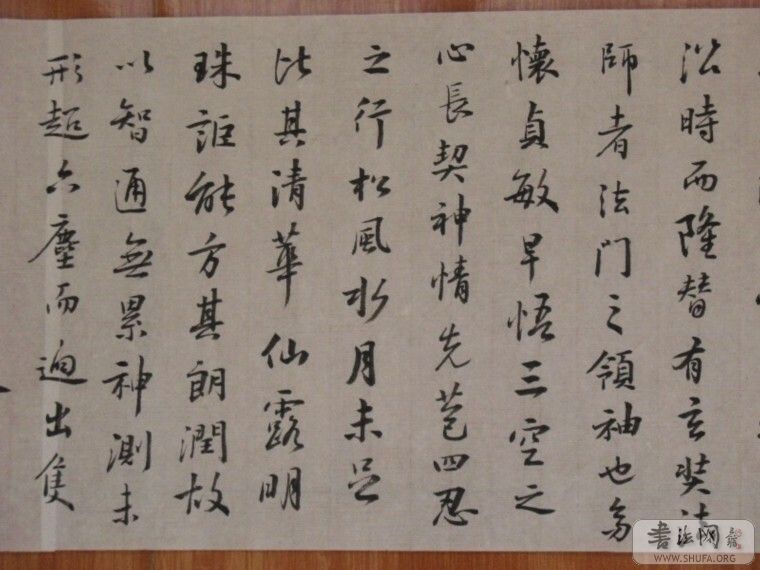 沿時而隆替有玄奘法
師者法門之領袖也幼
懷貞敏早悟三空之
心長契神情先苞四忍
之行松風水月未足
比其清華仙露明
珠詎能方其朗潤故
以智通無累神測未
形超六塵而迥出隻
書法网
WWW.SHUFA.ORG